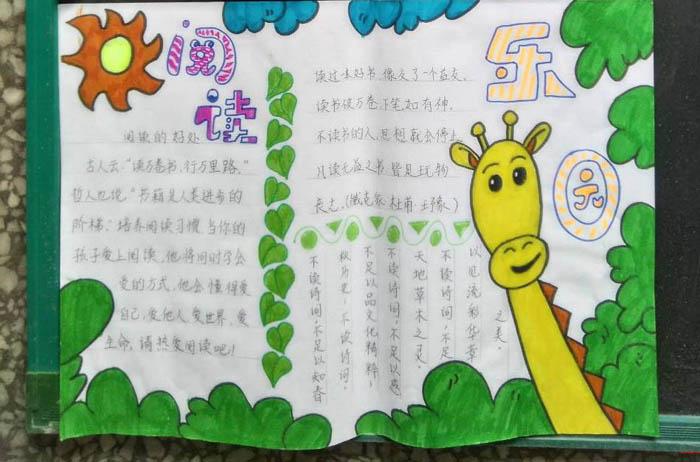 阅读
乐园
阅读的好处
古人云:“读万卷书,行万里路,”
哲人也说“书籍是人类进步的
阶梯、培养阅读习惯,当你的
孩子爱上阅读,他将同时学会
爱的方式,他会懂得爱
自己,爱他人,爱世界,爱
生命,请热爱阅读吧!
读过一本好书,像交了一个益友,
读书破万卷,下笔如有神,
不读书的人,思想就会停止
凡读无益之书,皆是玩物
丧志,(臧克家 杜甫 王豫)
不读诗词,不足以知春
秋历史,不读诗词,
不足以品文化精粹,
不读诗词,不足以感
天地草木之灵,
不读诗词,不足
以见流彩华章
之美。